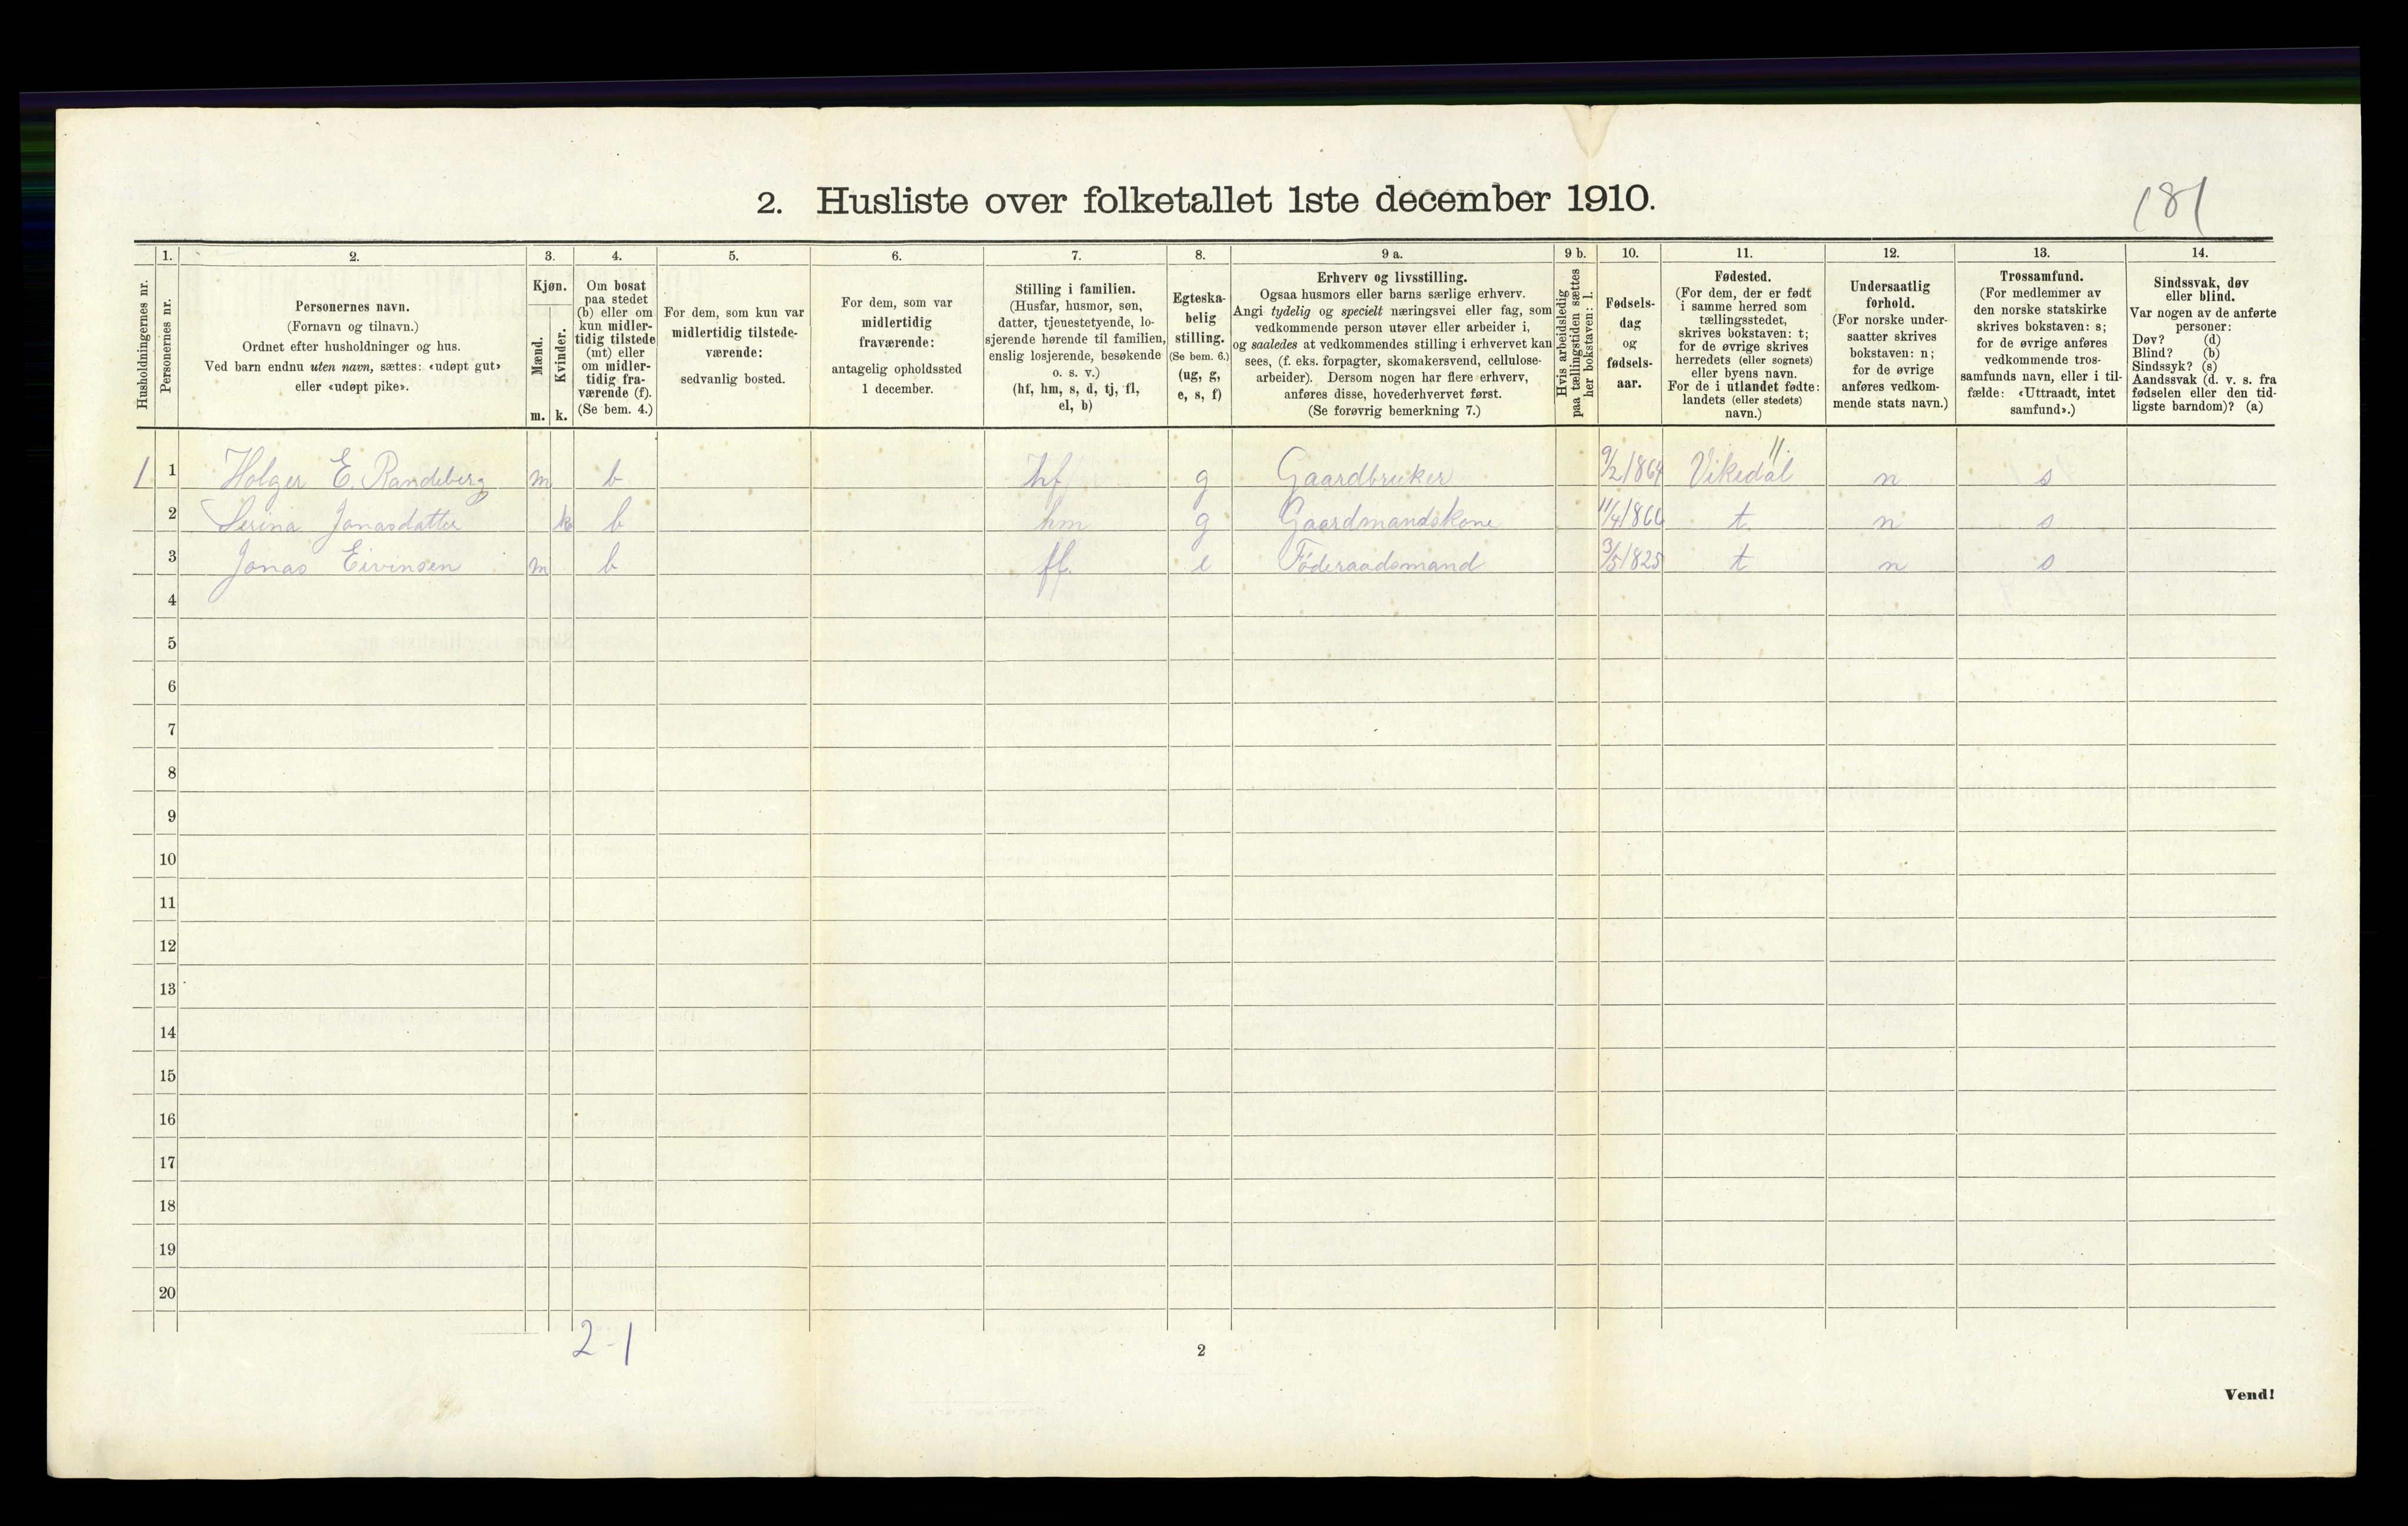 2. Husliste over folketallet 1ste december 1910.
181
Husholdningernes nr.
1.
Personernes nr.
2.
Personernes navn.
(Fornavn og tilnavn.)
Ordnet efter husholdninger og hus.
Ved barn endnu uten navn, sættes: «udøpt gut»
eller «udøpt pike».
3.
Kjøn.
Mænd.
m.
Kvinder.
k.
4.
Om bosat
paa stedet
(b) eller om
kun midler-
tidig tilstede
(mt) eller
om midler-
tidig fra-
værende (f).
(Se bem. 4.)
5.
For dem, som kun var
midlertidig tilstede-
værende:
sedvanlig bosted.
6.
For dem, som var
midlertidig
fraværende:
antagelig opholdssted
1 december.
7.
Stilling i familien.
(Husfar, husmor, søn,
datter, tjenestetyende, lo-
sjerende hørende til familien,
enslig losjerende, besøkende
o. s. v.)
(hf, hm, s, d, tj, fl,
el, b)
8.
Egteska-
belig
stilling.
(Se bem. 6.)
(ug, g,
e, s, f)
9 a.
Erhverv og livsstilling.
Ogsaa husmors eller barns særlige erhverv.
Angi tydelig og specielt næringsvei eller fag, som
vedkommende person utøver eller arbeider i,
og saaledes at vedkommendes stilling i erhvervet kan
sees, (f. eks. forpagter, skomakersvend, cellulose-
arbeider). Dersom nogen har flere erhverv,
anføres disse, hovederhvervet først.
(Se forøvrig bemerkning 7.)
9 b.
Hvis arbeidsledig
paa tællingstiden sættes
her bokstaven: l.
10.
Fødsels-
dag
og
fødsels-
aar.
11.
Fødested.
(For dem, der er født
i samme herred som
tællingsstedet,
skrives bokstaven: t;
for de øvrige skrives
herredets (eller sognets)
eller byens navn.
For de i utlandet fødte:
landets (eller stedets)
navn.)
12.
Undersaatlig
forhold.
(For norske under-
saatter skrives
bokstaven: n;
for de øvrige
anføres vedkom-
mende stats navn.)
13.
Trossamfund.
(For medlemmer av
den norske statskirke
skrives bokstaven: s;
for de øvrige anføres
vedkommende tros-
samfunds navn, eller i til-
fælde: «Uttraadt, intet
samfund».)
14.
Sindssvak, døv
eller blind.
Var nogen av de anførte
personer:
Døv? (d)
Blind? (b)
Sindssyk? (s)
Aandssvak (d. v. s. fra
fødselen eller den tid-
ligste barndom)? (a)
1 1 Holger E. Randeberg m b hf g Gaardbruker 9/2 1864 Vikedal n s
2 Serina Jonasdatter k b hm g Gaardmandskone 11/4 1866 t n s
3 Jonas Eivinsen m b fl. e Føderaadsmand 3/5 1825 t n s
4
5
6
7
8
9
10
11
12
13
14
15
16
17
18
19
20
2-1
2
Vend!